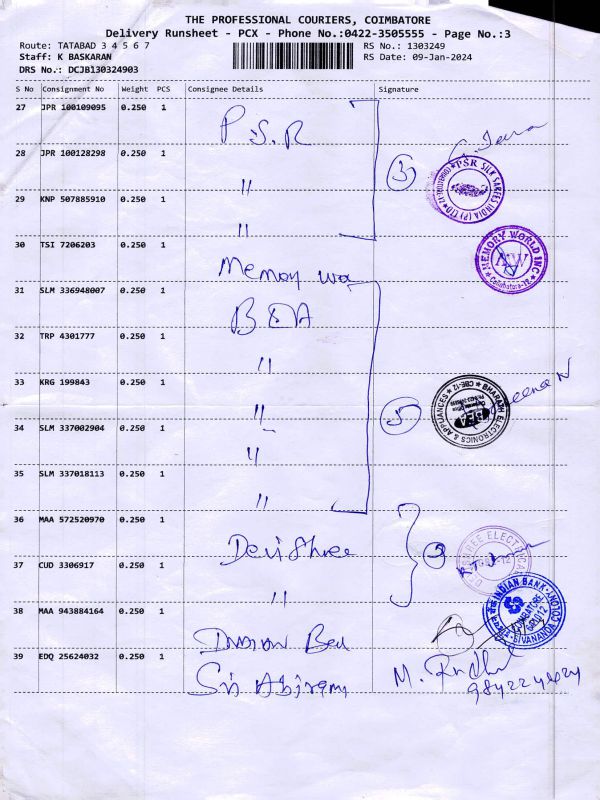 THE PROFESSIONAL COURIERS, COIMBATORE
Delivery Runsheet - PCX - Phone No.:0422-3505555 - Page No.:3
Route: TATABAD 3 4 5 6 7
RS No.: 1303249
Staff: K BASKARAN
RS Date: 09-Jan-2024
DRS No.: DCJB130324903
S No Consignment No Weight PCS Consignee Details Signature
27 JPR 100109095 0.250 1 P.S.R
28 JPR 100128298 0.250 1 "
3
PSR SILK SAREES INDIA (P) LTD
29 KNP 507885910 0.250 1 "
30 TSI 7206203 0.250 1 Memory wo
MEMORY WORLD INC
Coimbatore-12
31 SLM 336948007 0.250 1 BEA
32 TRP 4301777 0.250 1 "
33 KRG 199843 0.250 1 "
5
BHARATH ELECTRONICS & APPLIANCES
CBE-12
BEA
34 SLM 337002904 0.250 1 "
35 SLM 337018113 0.250 1 "
36 MAA 572520970 0.250 1 Devi Shree
2
37 CUD 3306917 0.250 1 "
INDIAN BANK
COIMBATORE
SIVANANDA COLONY
38 MAA 943884164 0.250 1
39 EDQ 25624032 0.250 1 Sri Abirami